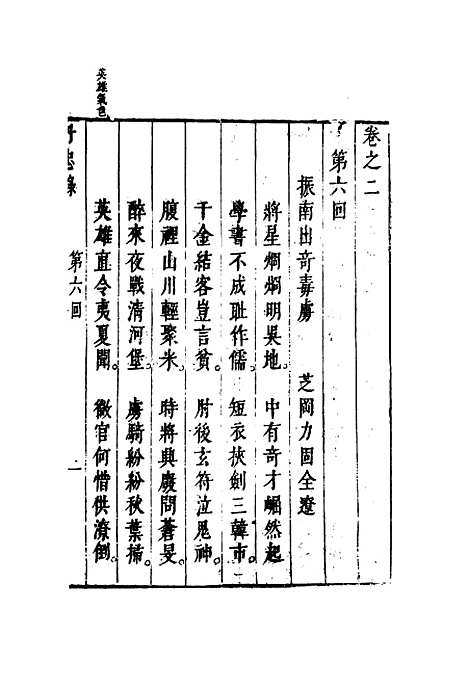 卷之二
第六回
振南出奇毒虜　芝岡力固全遼
將星烱烱明吳地。中有奇才崛然起
學書不成耻作儒。短衣挾劍三韓市。
千金結客豈言貧。肘後玄符泣鬼神。
腹裡山川輕聚米。時將興廢問蒼旻。
醉來夜戰清河堡。虜騎紛紛秋葉掃。
英雄氣色
英雄直令夷夏聞。微官何惜供潦倒。
丹忠錄　第六回　一